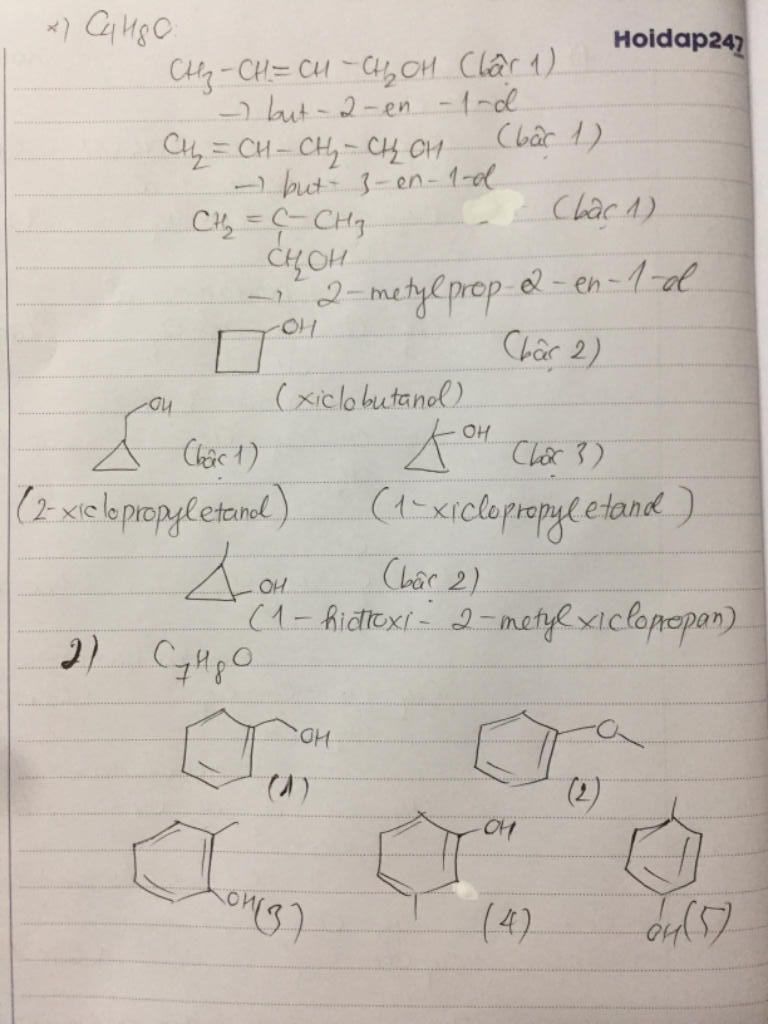 *) C4H8O:
Hoidap247
CH3-CH=CH-CH2OH (bậc 1)
→ but-2-en-1-ol
CH2=CH-CH2-CH2OH (bậc 1)
→ but-3-en-1-ol
CH2=C-CH3 (bậc 1)
CH2OH
→ 2-metylprop-2-en-1-ol
OH
(bậc 2)
(xiclobutanol)
OH
(bậc 1) OH (bậc 3)
(2-xiclopropyletanol) (1-xiclopropyletanol)
OH (bậc 2)
(1-hiđroxi-2-metylxiclopropan)
2) C7H8O
OH O
(1) (2)
OH
OH (3) (4) OH (5)